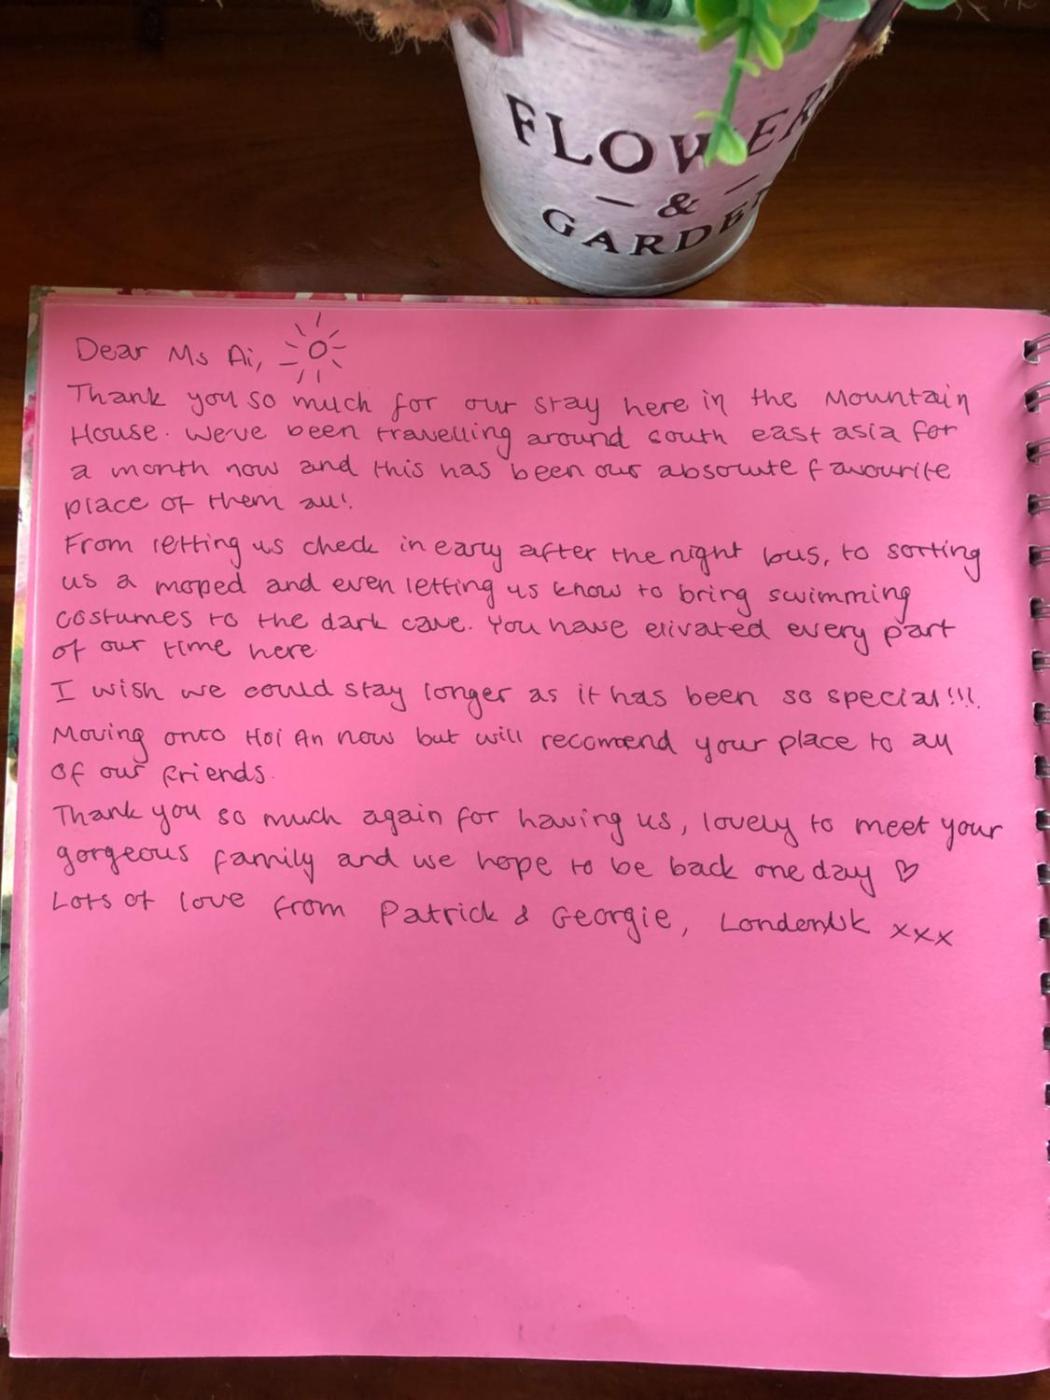 FLOWER
- & -
GARDEN
Dear Ms Ai,
Thank you so much for our stay here in the Mountain
House. We've been travelling around south east asia for
a month now and this has been our absolute favourite
place of them all!
From letting us check in early after the night bus, to sorting
us a moped and even letting us know to bring swimming
costumes to the dark cave. You have elivated every part
of our time here
I wish we could stay longer as it has been so special!!!
Moving onto Hoi An now but will recomend your place to all
of our friends.
Thank you so much again for having us, lovely to meet your
gorgeous family and we hope to be back one day ♡
Lots of love from Patrick & Georgie, London UK xxx